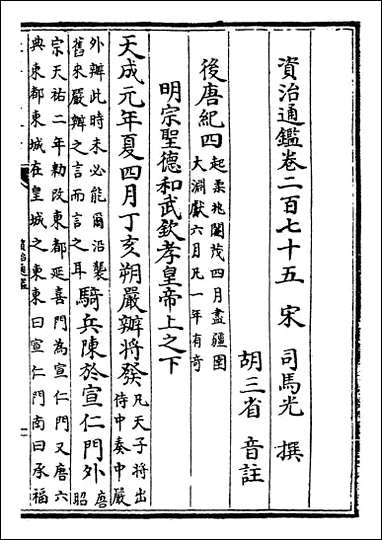 資治通鑑卷二百七十五 宋 司馬光 撰
胡三省 音註
後唐紀四 起柔兆閹茂四月盡彊圉
大淵獻六月凡一年有奇
明宗聖德和武欽孝皇帝上之下
天成元年夏四月丁亥朔嚴辦將發 凡天子將出
侍中奏中嚴
外辦此時未必能爾沿襲
舊來嚴辦之言而言之耳 騎兵陳於宣仁門外 唐
昭
宗天祐二年勅改東都延喜門為宣仁門又唐六
典東都東城在皇城之東東曰宣仁門南曰承福